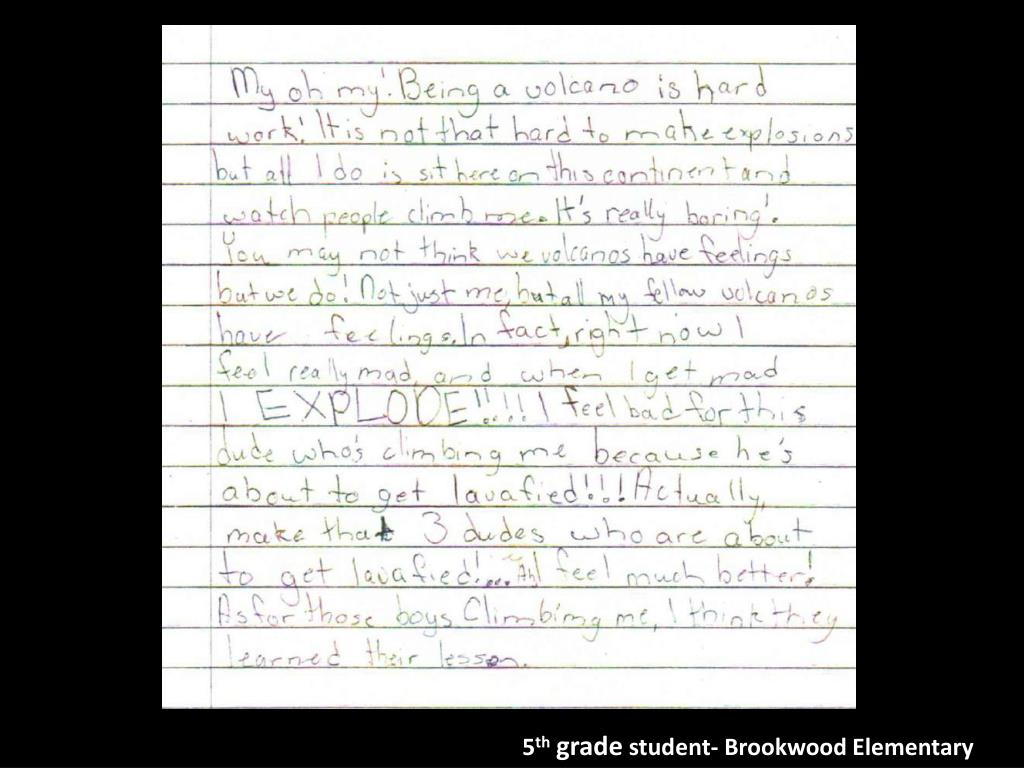 My oh my! Being a volcano is hard
work! It is not that hard to make explosions
but all I do is sit here on this continent and
watch people climb me. It's really boring!
You may not think we volcanos have feelings
but we do! Not just me, but all my fellow volcanos
have feelings. In fact, right now I
feel really mad, and when I get mad
I EXPLODE!!!! I feel bad for this
dude who's climbing me because he's
about to get lavafied!!! Actually,
make that 3 dudes who are about
to get lavafied!... Ah I feel much better!
As for those boys Climbing me, I think they
learned their lesson.
5th grade student- Brookwood Elementary